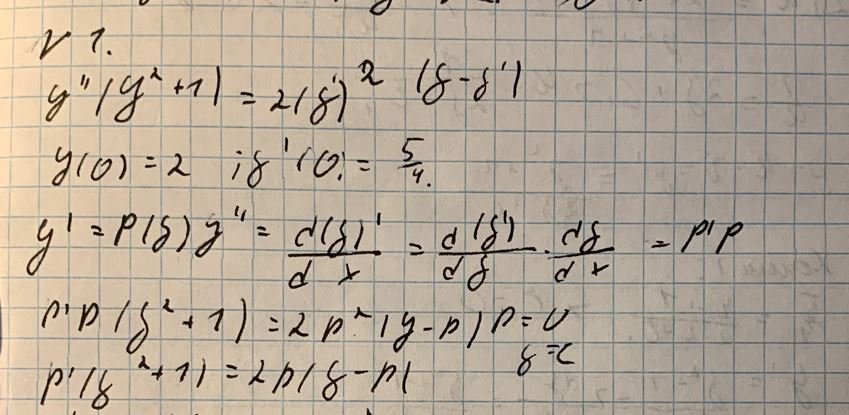 № 1.
y''(y² + 1) = 2(y')² (y - y')
y(0) = 2 ; y'(0) = 5/4.
y' = P(y) y'' = d(y)'/dx = d(y')/dy · dy/dx = p'p
p'p(y² + 1) = 2p²(y - p) p = 0
y = c
p'(y² + 1) = 2p(y - p)